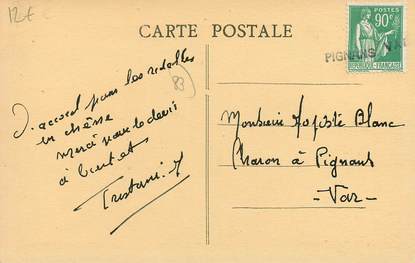 12€
CARTE POSTALE
POSTES
90c
RÉPUBLIQUE FRANÇAISE
PIGNANS VAR
83
D'accord pour les ridelles
en chêne
merci pour le devis
à bientôt
Monsieur Auguste Blanc
Charon à Pignans
- Var -